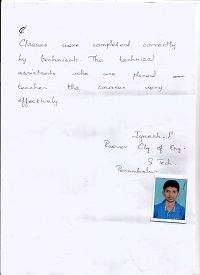 Classes were completed correctly
by technicals. The technical
assistants who are placed
teaches the courses very
effectively
Jgnesh.P
College of Eng.
& Tech.